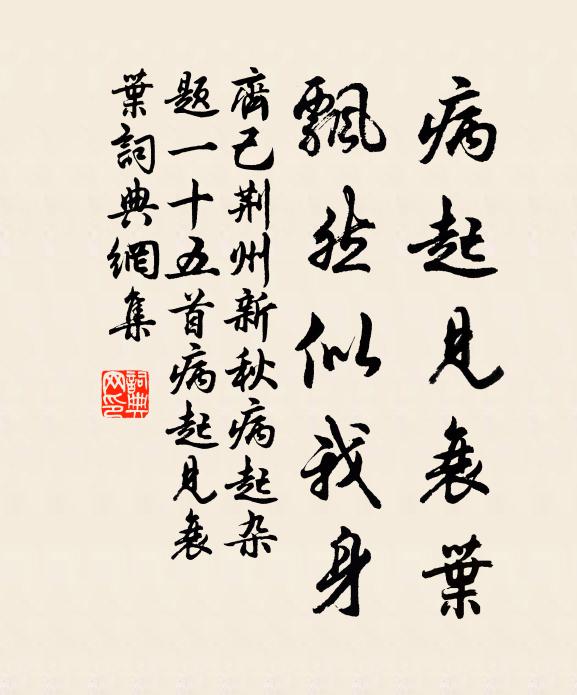 病起見衰葉
飄然似我身
齊己荆州新秋病起杂
题一十五首病起見衰
葉詞典網集
詞典
网印